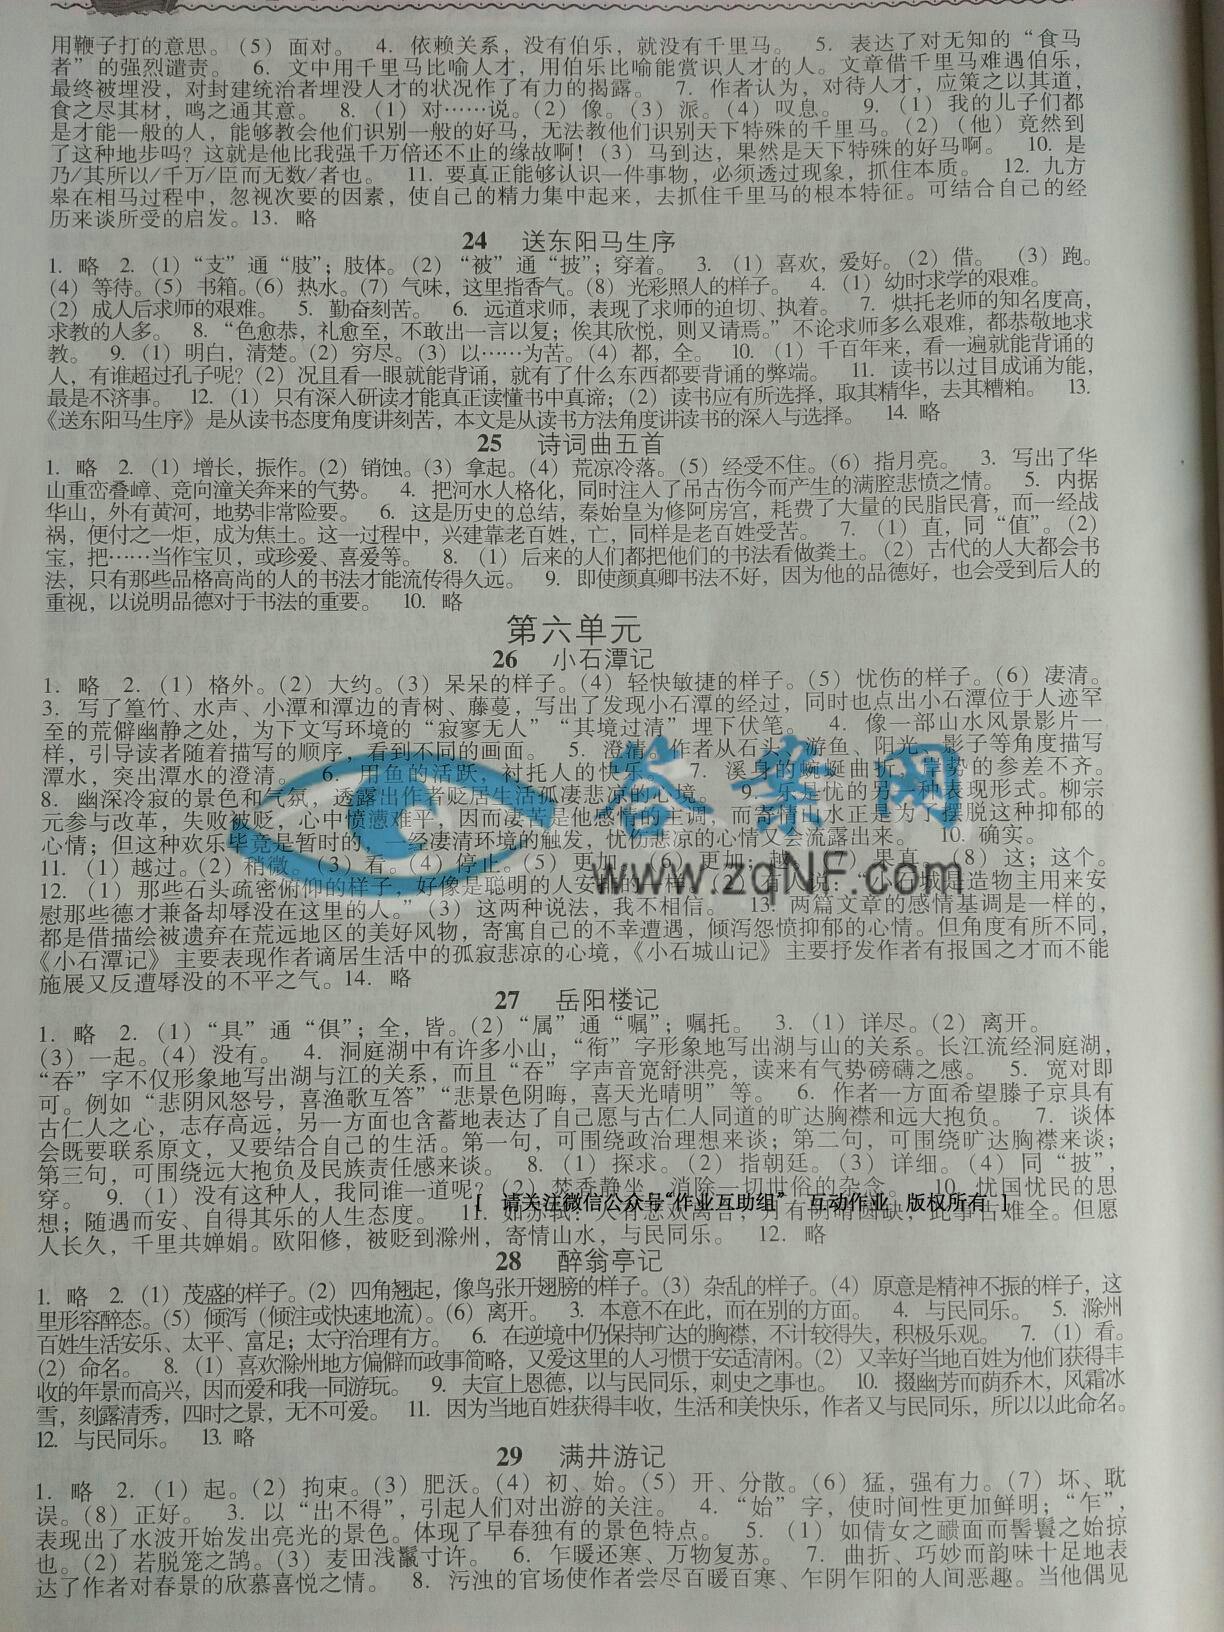 用鞭子打的意思。（5）面对。 4. 依赖关系，没有伯乐，就没有千里马。 5. 表达了对无知的“食马
者”的强烈谴责。 6. 文中用千里马比喻人才，用伯乐比喻能赏识人才的人。文章借千里马难遇伯乐，
最终被埋没，对封建统治者埋没人才的状况作了有力的揭露。 7. 作者认为，对待人才，应策之以其道，
食之尽其材，鸣之通其意。 8.（1）对……说。（2）像。（3）派。（4）叹息。 9.（1）我的儿子们都
是才能一般的人，能够教会他们识别一般的好马，无法教他们识别天下特殊的千里马。（2）（他）竟然到
了这种地步吗？这就是他比我强千万倍还不止的缘故啊！（3）马到达，果然是天下特殊的好马啊。 10. 是
乃/其所以/千万/臣而无数/者也。 11. 要真正能够认识一件事物，必须透过现象，抓住本质。 12. 九方
皋在相马过程中，忽视次要的因素，使自己的精力集中起来，去抓住千里马的根本特征。可结合自己的经
历来谈所受的启发。13. 略
24 送东阳马生序
1. 略 2.（1）“支”通“肢”；肢体。（2）“被”通“披”；穿着。 3.（1）喜欢，爱好。（2）借。（3）跑。
（4）等待。（5）书箱。（6）热水。（7）气味，这里指香气。（8）光彩照人的样子。 4.（1）幼时求学的艰难。
（2）成人后求师的艰难。 5. 勤奋刻苦。 6. 远道求师，表现了求师的迫切、执着。 7. 烘托老师的知名度高，
求教的人多。 8. “色愈恭，礼愈至，不敢出一言以复；俟其欣悦，则又请焉。”不论求师多么艰难，都恭敬地求
教。 9.（1）明白，清楚。（2）穷尽。（3）以……为苦。（4）都，全。 10.（1）千百年来，看一遍就能背诵的
人，有谁超过孔子呢？（2）况且看一眼就能背诵，就有了什么东西都要背诵的弊端。 11. 读书以过目成诵为能，
最是不济事。 12.（1）只有深入研读才能真正读懂书中真谛；（2）读书应有所选择，取其精华，去其糟粕。 13.
《送东阳马生序》是从读书态度角度讲刻苦，本文是从读书方法角度讲读书的深入与选择。 14. 略
25 诗词曲五首
1. 略 2.（1）增长，振作。（2）销蚀。（3）拿起。（4）荒凉冷落。（5）经受不住。（6）指月亮。 3. 写出了华
山重峦叠嶂、竞向潼关奔来的气势。 4. 把河水人格化，同时注入了吊古伤今而产生的满腔悲愤之情。 5. 内据
华山，外有黄河，地势非常险要。 6. 这是历史的总结，秦始皇为修阿房宫，耗费了大量的民脂民膏，而一经战
祸，便付之一炬，成为焦土。这一过程中，兴建靠老百姓，亡，同样是老百姓受苦。 7.（1）直，同“值”。（2）
宝，把……当作宝贝，或珍爱、喜爱等。 8.（1）后来的人们都把他们的书法看做粪土。（2）古代的人大都会书
法，只有那些品格高尚的人的书法才能流传得久远。 9. 即使颜真卿书法不好，因为他的品德好，也会受到后人的
重视，以说明品德对于书法的重要。 10. 略
第六单元
26 小石潭记
1. 略 2.（1）格外。（2）大约。（3）呆呆的样子。（4）轻快敏捷的样子。（5）忧伤的样子。（6）凄清。
3. 写了篁竹、水声、小潭和潭边的青树、藤蔓，写出了发现小石潭的经过，同时也点出小石潭位于人迹罕
至的荒僻幽静之处，为下文写环境的“寂寥无人”“其境过清”埋下伏笔。 4. 像一部山水风景影片一
样，引导读者随着描写的顺序，看到不同的画面。 5. 澄清。作者从石头、游鱼、阳光、影子等角度描写
潭水，突出潭水的澄清。 6. 用鱼的活跃，衬托人的快乐。 7. 溪身的蜿蜒曲折，岸势的参差不齐。
8. 幽深冷寂的景色和气氛，透露出作者贬居生活孤凄悲凉的心境。 9. 乐是忧的另一种表现形式。柳宗
元参与改革，失败被贬，心中愤懑难平，因而凄苦是他感情的主调，而寄情山水正是为了摆脱这种抑郁的
心情；但这种欢乐毕竟是暂时的，一经凄清环境的触发，忧伤悲凉的心情又会流露出来。 10. 确实。
11.（1）越过。（2）稍微。（3）看。（4）停止。（5）更加。（6）更加；越。（7）果真。（8）这；这个。
12.（1）那些石头疏密俯仰的样子，好像是聪明的人安排的一样。（2）有人说：“城是造物主用来安
慰那些德才兼备却辱没在这里的人。”（3）这两种说法，我不相信。 13. 两篇文章的感情基调是一样的，
都是借描绘被遗弃在荒远地区的美好风物，寄寓自己的不幸遭遇，倾泻怨愤抑郁的心情。但角度有所不同，
《小石潭记》主要表现作者谪居生活中的孤寂悲凉的心境，《小石城山记》主要抒发作者有报国之才而不能
施展又反遭辱没的不平之气。14. 略
27 岳阳楼记
1. 略 2.（1）“具”通“俱”；全，皆。（2）“属”通“嘱”；嘱托。 3.（1）详尽。（2）离开。
（3）一起。（4）没有。 4. 洞庭湖中有许多小山，“衔”字形象地写出湖与山的关系。长江流经洞庭湖，
“吞”字不仅形象地写出湖与江的关系，而且“吞”字声音宽舒洪亮，读来有气势磅礴之感。 5. 宽对即
可。例如“悲阴风怒号，喜渔歌互答”“悲景色阴晦，喜天光晴明”等。 6. 作者一方面希望滕子京具有
古仁人之心，志存高远，另一方面也含蓄地表达了自己愿与古仁人同道的旷达胸襟和远大抱负。 7. 谈体
会既要联系原文，又要结合自己的生活。第一句，可围绕政治理想来谈；第二句，可围绕旷达胸襟来谈；
第三句，可围绕远大抱负及民族责任感来谈。 8.（1）探求。（2）指朝廷。（3）详细。（4）同“披”，
穿。 9.（1）没有这种人，我同谁一道呢？（2）焚香静坐，消除一切世俗的杂念。 10. 忧国忧民的思
[ 请关注微信公众号“作业互助组” 互动作业 版权所有 ]
想；随遇而安、自得其乐的人生态度。 11. 如苏轼：人有悲欢离合，月有阴晴圆缺，此事古难全。但愿
人长久，千里共婵娟。欧阳修，被贬到滁州，寄情山水，与民同乐。 12. 略
28 醉翁亭记
1. 略 2.（1）茂盛的样子。（2）四角翘起，像鸟张开翅膀的样子。（3）杂乱的样子。（4）原意是精神不振的样子，这
里形容醉态。（5）倾泻（倾注或快速地流）。（6）离开。 3. 本意不在此，而在别的方面。 4. 与民同乐。 5. 滁州
百姓生活安乐、太平、富足；太守治理有方。 6. 在逆境中仍保持旷达的胸襟，不计较得失，积极乐观。 7.（1）看。
（2）命名。 8.（1）喜欢滁州地方偏僻而政事简略，又爱这里的人习惯于安适清闲。（2）又幸好当地百姓为他们获得丰
收的年景而高兴，因而爱和我一同游玩。 9. 夫宣上恩德，以与民同乐，刺史之事也。 10. 掇幽芳而荫乔木，风霜冰
雪，刻露清秀，四时之景，无不可爱。 11. 因为当地百姓获得丰收，生活和美快乐，作者又与民同乐，所以以此命名。
12. 与民同乐。 13. 略
29 满井游记
1. 略 2.（1）起。（2）拘束。（3）肥沃。（4）初、始。（5）开、分散。（6）猛，强有力。（7）坏、耽
误。（8）正好。 3. 以“出不得”，引起人们对出游的关注。 4. “始”字，使时间性更加鲜明；“乍”，
表现出了水波开始发出亮光的景色。体现了早春独有的景色特点。 5.（1）如倩女之靧面而髻鬟之始掠
也。（2）若脱笼之鹄。（3）麦田浅鬣寸许。 6. 乍暖还寒、万物复苏。 7. 曲折、巧妙而韵味十足地表
达了作者对春景的欣慕喜悦之情。 8. 污浊的官场使作者尝尽百暖百寒、乍阴乍阳的人间恶趣。当他偶见
答案网
www.zqNF.com